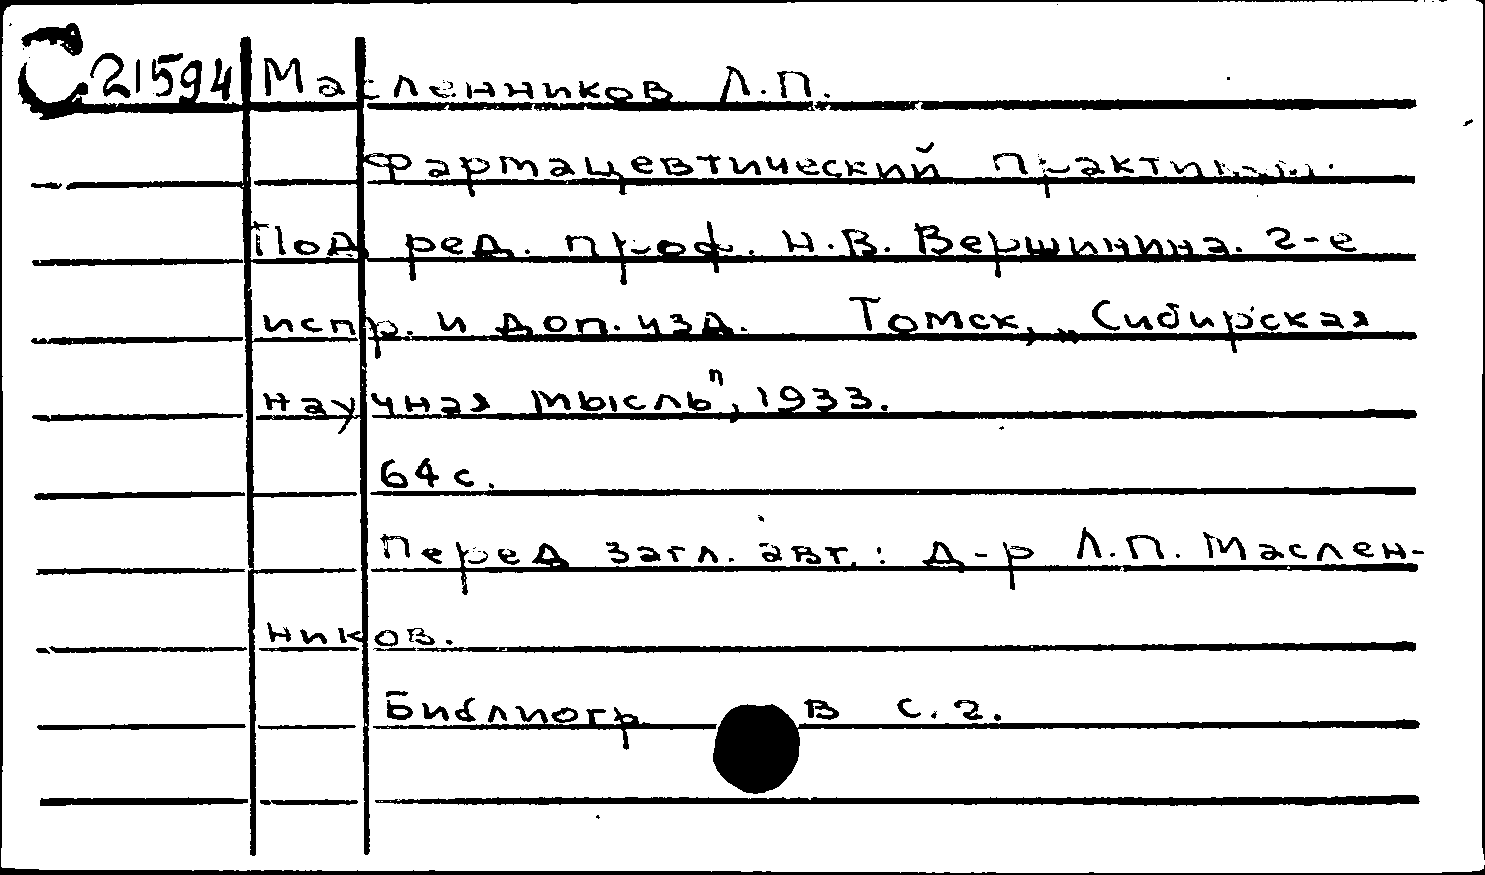 С21594 Масленников Л.П.
Фармацевтический практикум.
Под ред. проф. Н.В. Вершинина. 2-е
испр. и доп. изд. Томск, „Сибирская
научная мысль", 1933.
64 с.
Перед загл. авт.: д-р Л.П. Маслен-
ников.
Библиогр. в с. 2.